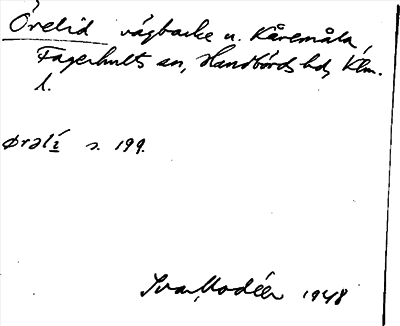 Örelid vägbacke u. Kåremåla,
Fagerhults sn, Handbörds hd, Klm.
l.
ørəlí s. 199.
Ivar Modéer 1948